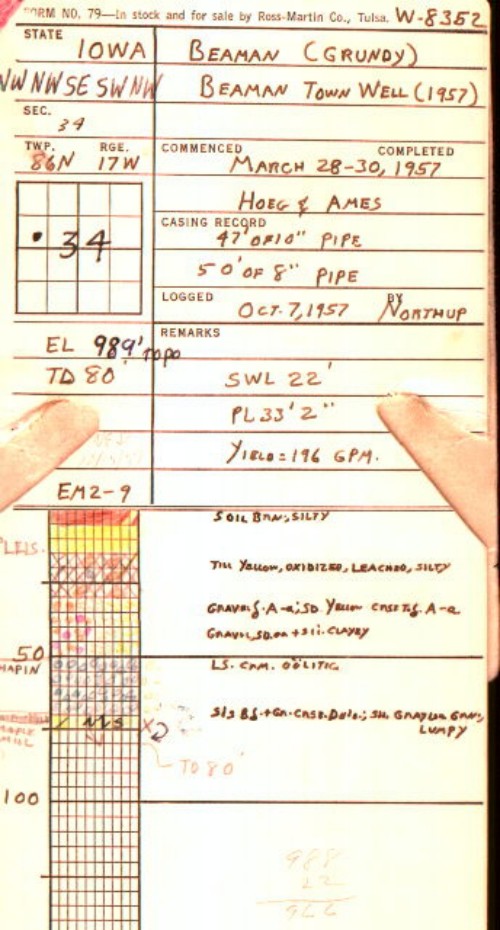 FORM NO. 79—In stock and for sale by Ross-Martin Co., Tulsa. W-8352
STATE
IOWA BEAMAN (GRUNDY)
NW NW SE SW NW BEAMAN TOWN WELL (1957)
SEC.
34
TWP. RGE. COMMENCED COMPLETED
86N 17W MARCH 28-30, 1957
HOEG & AMES
CASING RECORD
34 47' OF 10" PIPE
50' OF 8" PIPE
LOGGED BY
OCT. 7, 1957 NORTHUP
EL 989' TOPO REMARKS
TD 80' SWL 22'
PL 33' 2"
YIELD = 196 GPM.
EM2-9
SOIL BRN; SILTY
PLEIS.
TILL YELLOW, OXIDIZED, LEACHED, SILTY
GRAVEL, SD. + SILT. CLAYEY
50
HAPIN LS. CAM. OÖLITIC
GRAY LUMPY
MS
TD 80'
100
988
22
966